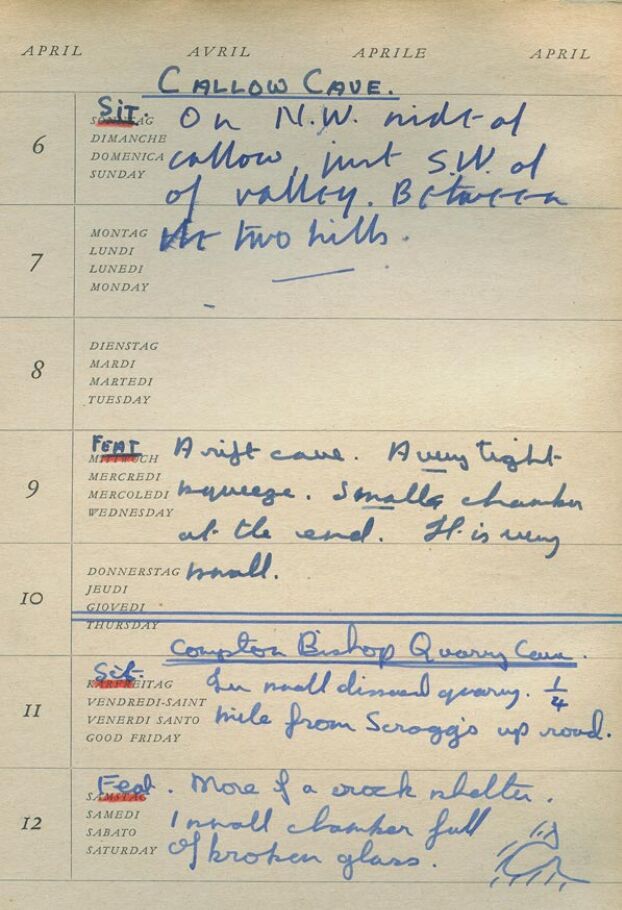 APRIL AVRIL APRILE APRIL
CALLOW CAVE.
6
SIT.
SONNTAG
DIMANCHE
DOMENICA
SUNDAY
On N.W. side of
callow, just S.W. of
of valley. Between
the two hills.
7
MONTAG
LUNDI
LUNEDI
MONDAY
8
DIENSTAG
MARDI
MARTEDI
TUESDAY
9
FEAT
MITTWOCH
MERCREDI
MERCOLEDI
WEDNESDAY
A rift cave. A very tight
squeeze. Small chamber
at the end. It is very
small.
10
DONNERSTAG
JEUDI
GIOVEDI
THURSDAY
Compton Bishop Quarry Cave.
11
Sit.
KARFREITAG
VENDREDI-SAINT
VENERDI SANTO
GOOD FRIDAY
In small disused quarry. 1/4
mile from Scraggs up road.
12
Feat.
SAMSTAG
SAMEDI
SABATO
SATURDAY
More of a rock shelter.
1 small chamber full
of broken glass.